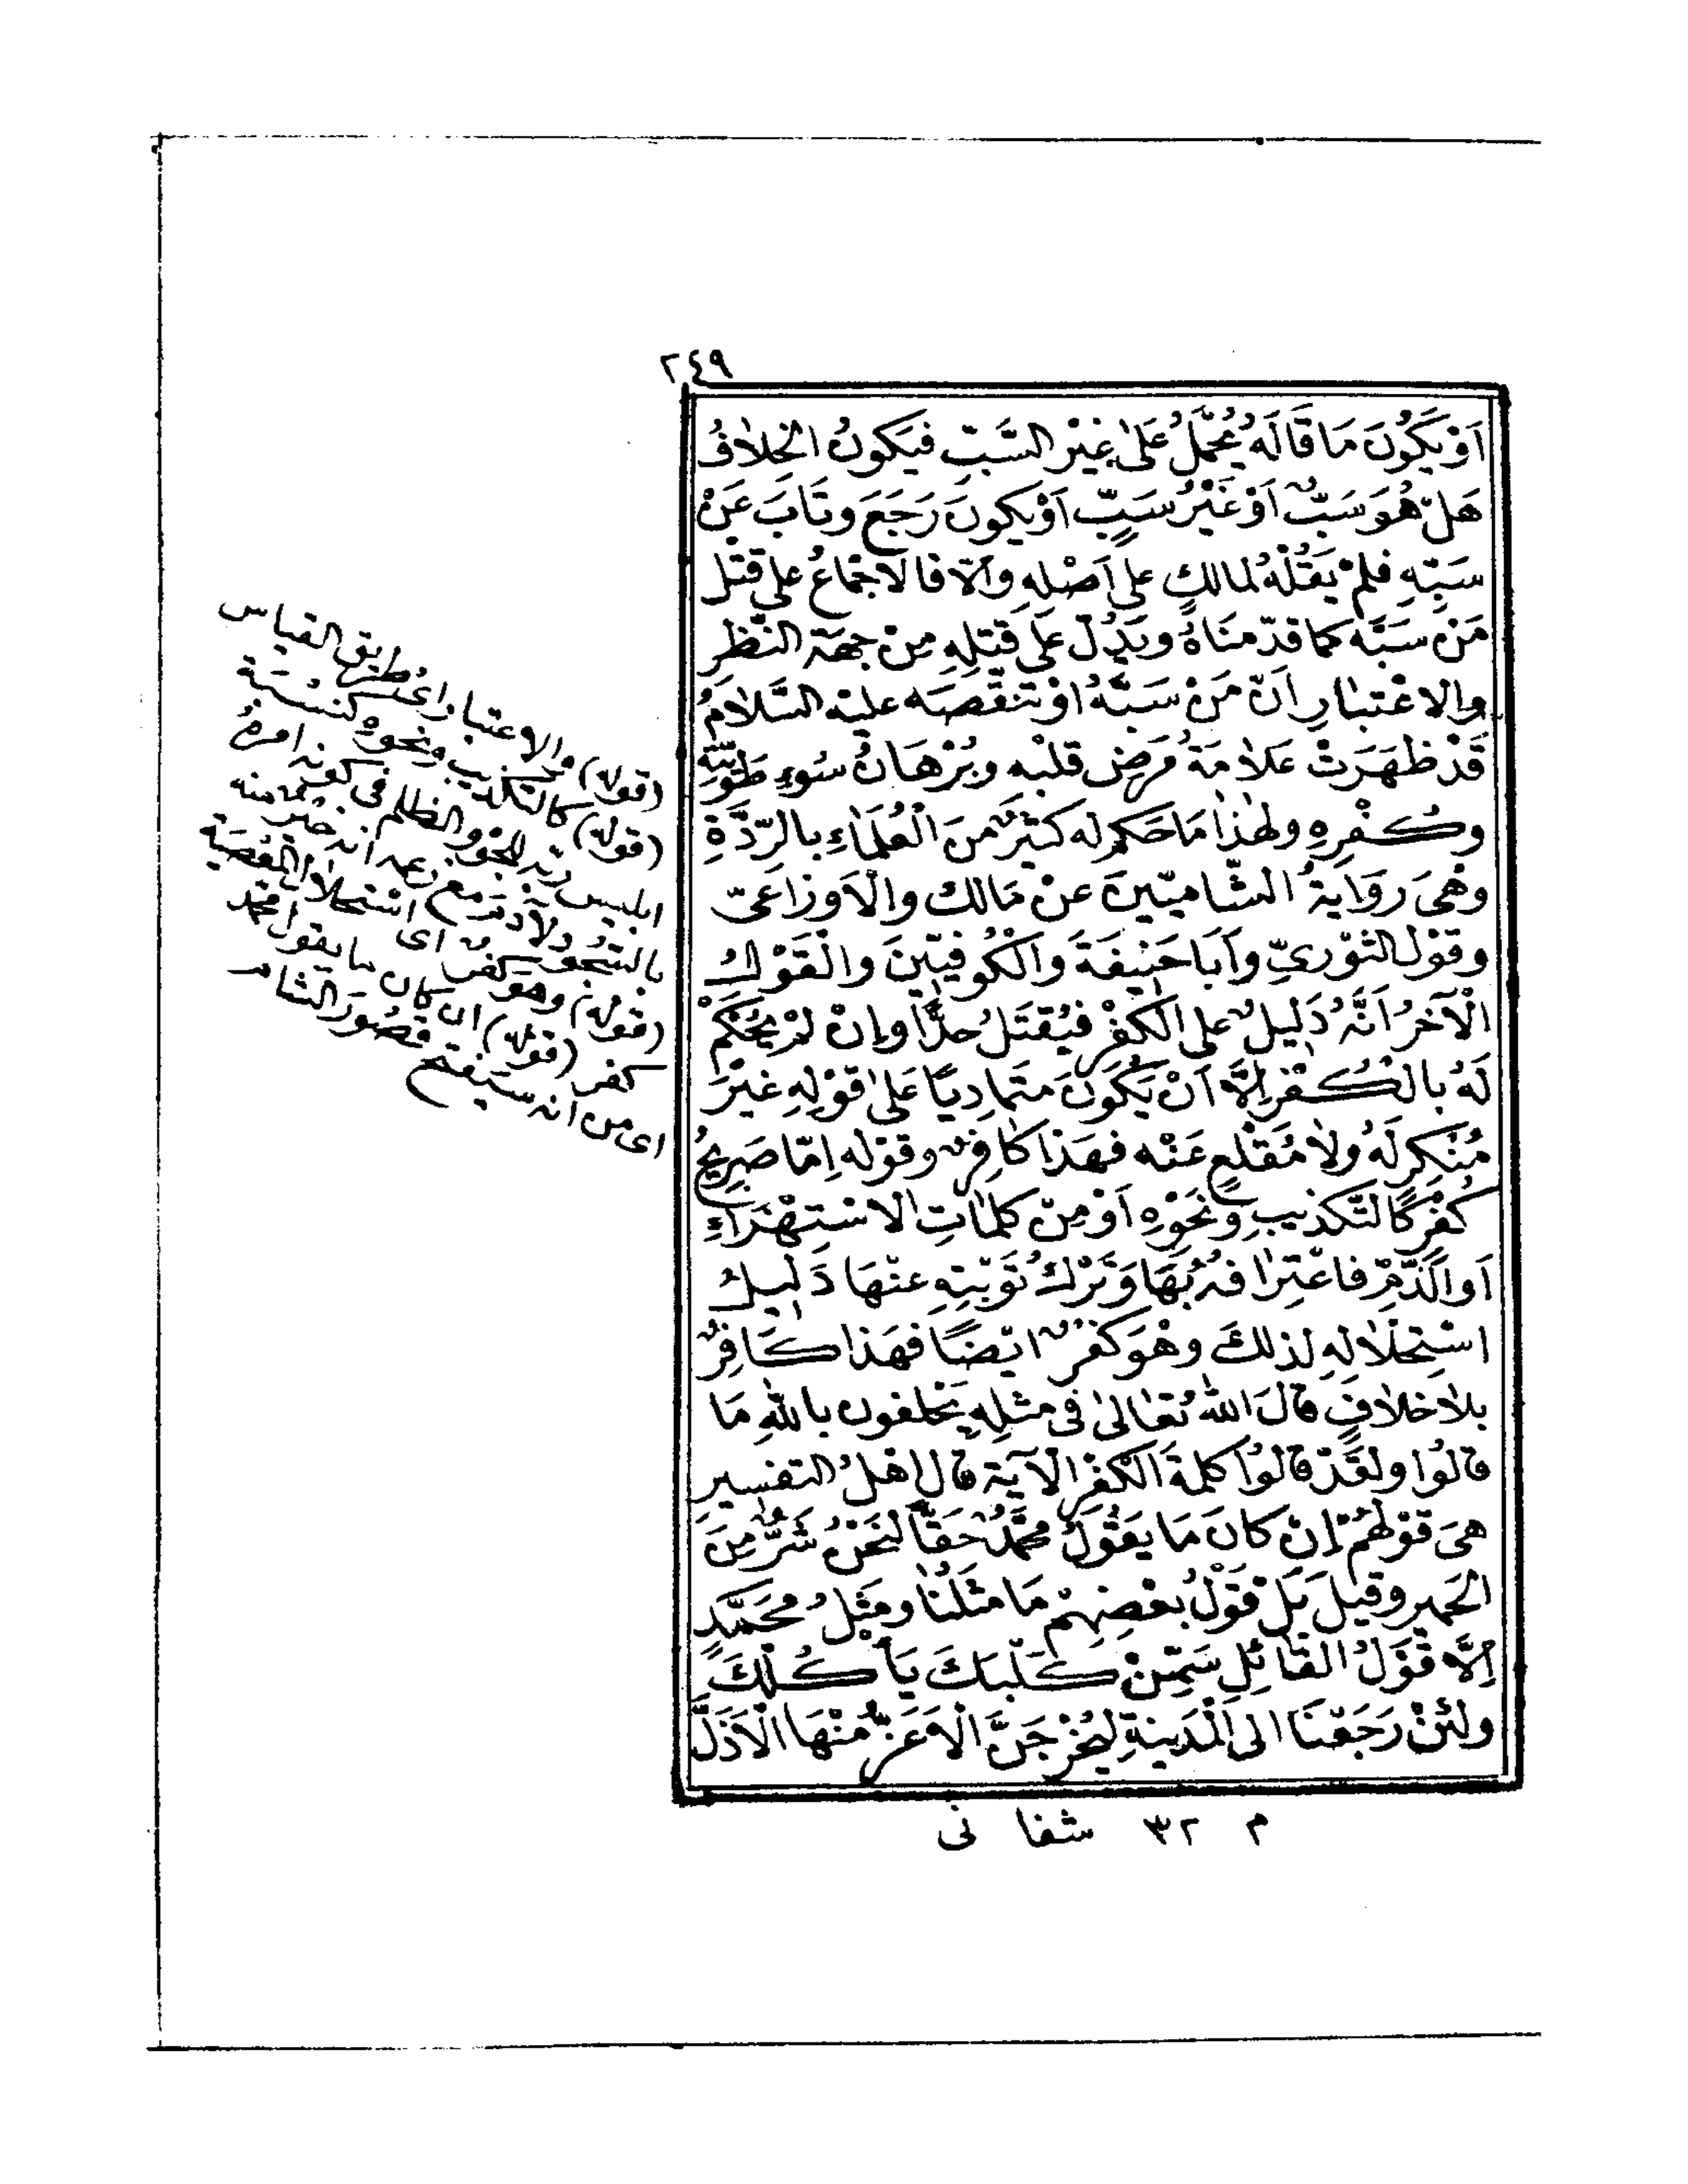 ٢٤٩
اَوْ يَكُونَ مَا قَالَهُ يُحْمَلُ عَلَى غَيْرِ السَّبِّ فَيَكُونُ الْخِلَافُ
هَلْ هُوَ سَبٌّ اَوْ غَيْرُ سَبٍّ اَوْ يَكُونَ رَجَعَ وَتَابَ عَنْ
سَبِّهِ فَلَمْ يَقُلْهُ لِمَالِكٍ عَلَى اَصْلِهِ وَاِلَّا فَالْاِجْمَاعُ عَلَى قَتْلِ
مَنْ سَبَّهُ كَمَا قَدَّمْنَاهُ وَيَدُلُّ عَلَى قَتْلِهِ مِنْ جِهَةِ النَّظَرِ
وَالِاعْتِبَارِ اَنَّ مَنْ سَبَّهُ اَوْ تَنَقَّصَهُ عَلَيْهِ السَّلَامُ
قَدْ ظَهَرَتْ عَلَامَةُ مَرَضِ قَلْبِهِ وَبُرْهَانُ سُوءِ طَوِيَّتِهِ
وَكُفْرِهِ وَلِهٰذَا مَا حَكَمَ لَهُ كَثِيرٌ مِنَ الْعُلَمَاءِ بِالرِّدَّةِ
وَهِيَ رِوَايَةُ الشَّامِيِّينَ عَنْ مَالِكٍ وَالْاَوْزَاعِيِّ
وَقَوْلُ الثَّوْرِيِّ وَاَبَا حَنِيفَةَ وَالْكُوفِيِّينَ وَالْقَوْلُ
الْآخَرُ اَنَّهُ دَلِيلٌ عَلَى الْكُفْرِ فَيُقْتَلُ حَدًّا وَاِنْ لَمْ يُحْكَمْ
لَهُ بِالْكُفْرِ اِلَّا اَنْ يَكُونَ مُتَمَادِيًا عَلَى قَوْلِهِ غَيْرَ
مُنْكِرٍ لَهُ وَلَا مُقْلِعٍ عَنْهُ فَهَذَا كَافِرٌ وَقَوْلُهُ اِمَّا صَرِيحُ
كُفْرٍ كَالتَّكْذِيبِ وَنَحْوِهِ اَوْ مِنْ كَلِمَاتِ الِاسْتِهْزَاءِ
اَوِ الذَّمِّ فَاعْتِرَافُهُ بِهَا وَتَرْكُ تَوْبَتِهِ عَنْهَا دَلِيلُ
اسْتِحْلَالِهِ لِذٰلِكَ وَهُوَ كُفْرٌ اَيْضًا فَهَذَا كَافِرٌ
بِلَا خِلَافٍ قَالَ اللهُ تَعَالَى فِى مِثْلِهِ يَحْلِفُونَ بِاللهِ مَا
قَالُوا وَلَقَدْ قَالُوا كَلِمَةَ الْكُفْرِ الْآيَةَ قَالَ اَهْلُ التَّفْسِيرِ
هِيَ قَوْلُهُمْ اِنْ كَانَ مَا يَقُولُ مُحَمَّدٌ حَقًّا لَنَحْنُ شَرٌّ مِنَ
الْحَمِيرِ وَقِيلَ بَلْ قَوْلُ بَعْضِهِمْ مَا مَثَلُنَا وَمَثَلُ مُحَمَّدٍ
اِلَّا قَوْلُ الْقَائِلِ سَمِّنْ كَلْبَكَ يَأْكُلْكَ
وَلَئِنْ رَجَعْنَا اِلَى الْمَدِينَةِ لَيُخْرِجَنَّ الْاَعَزُّ مِنْهَا الْاَذَلَّ
(قوله) والاعتبار اى طريق القياس
(قوله) كالتكذيب ونحوه كنسبة
ابليس ربه الجور والظلم فى كونه امره
بالسجود لآدم مع زعمه انه خير منه
(قوله) وهو كفر اى استحلال المعصية
كفر (قوله) ان كان ما يقول محمد
اى من انه سيفتح قصور الشام
م ٣٢ شفا نى